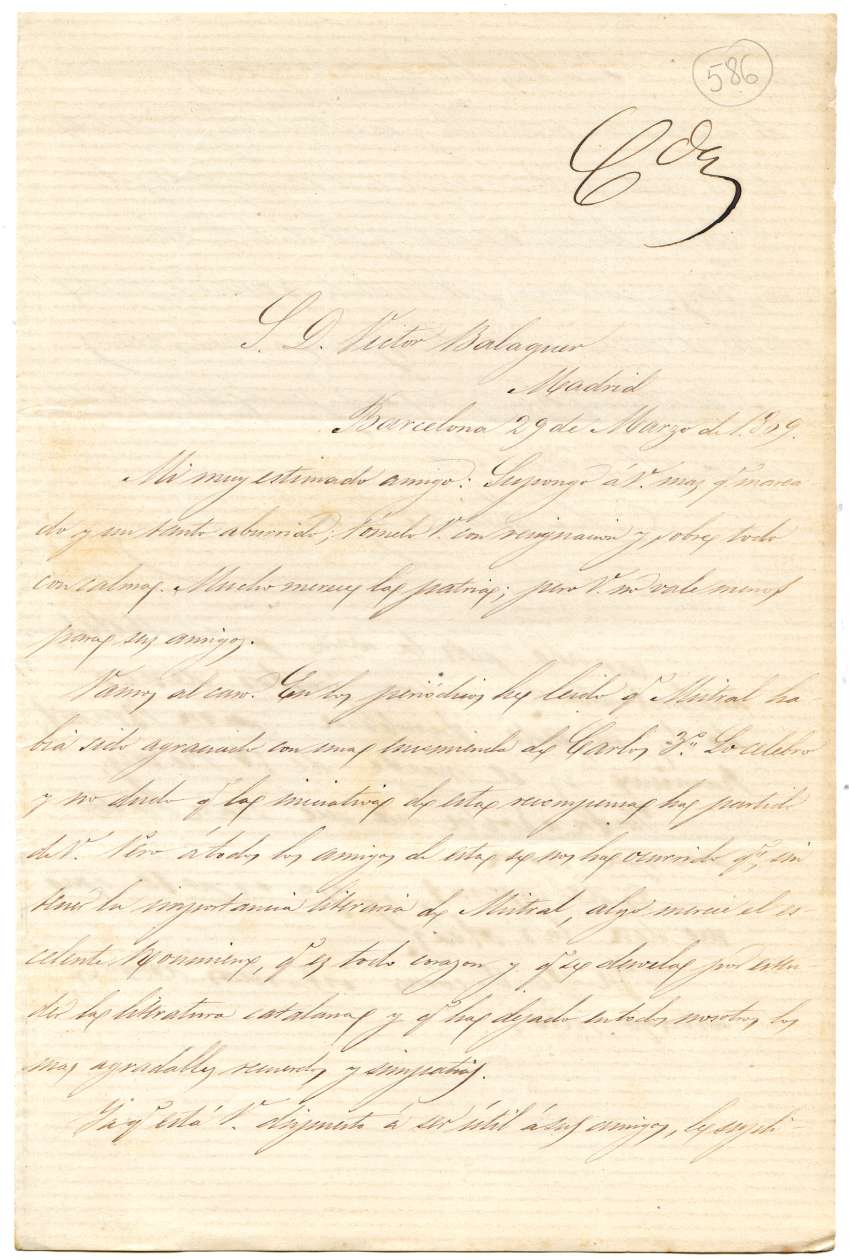 586
C.da
S. D. Victor Balaguer
Madrid
Barcelona 29 de Marzo de 1869.
Mi muy estimado amigo: Supongo á V. mas q.e marea
do y un tanto aburrido; tómelo V. con resignacion y sobre todo
con calma. Mucho merece la patria; pero V. no vale menos
para sus amigos.
Vamos al caso. En los periódicos he leido q.e Mistral ha
bia sido agraciado con una encomienda de Carlos 3.o Lo celebro
y no dudo q.e la iniciativa de esta recompensa ha partido
de V. Pero á todos los amigos de esta se nos ha ocurrido q.e, sin
tener la importancia literaria de Mistral, algo merece el es-
celente Roumieux, q.e es todo corazon y q.e se desvela por esten
der la literatura catalana y q.e ha dejado en todos nosotros los
mas agradables recuerdos y simpatias.
Ya q.e está V. dispuesto á ser útil á sus amigos, le supli-